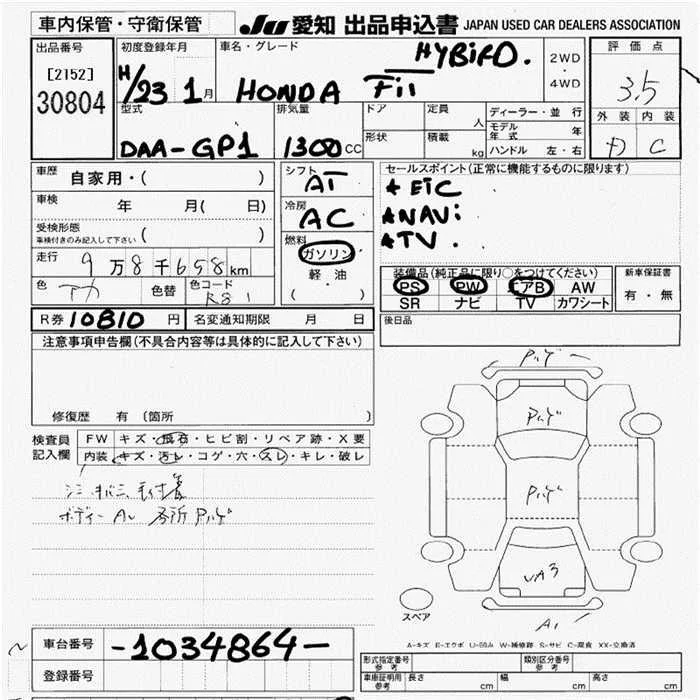 車内保管・守衛保管 JU 愛知 出品申込書 JAPAN USED CAR DEALERS ASSOCIATION
出品番号 初度登録年月 車名・グレード 評価点
[2152] H/23 1月 HONDA Fit HYBiRD. 2WD・4WD 3.5
30804
型式 排気量 ドア 定員 人 ディーラー・並行 外装 内装
DAA-GP1 1300CC 形状 積載 kg モデル年式 年 D C
ハンドル 左・右
車歴 自家用・( ) シフト AT セールスポイント(正常に機能するものに限ります)
車検 年 月( 日) 冷房 AC
★ EtC
★NAVi
★TV.
受検形態 ( )
車検付きのみ記入して下さい
燃料 ガソリン
軽・油
( )
走行 9万8千658km
色 色替 色コード
装備品(純正品に限り○をつけてください) 新車保証書
PS PW エアB AW
SR ナビ TV カワシート 有・無
R券 10810円 名変通知期限 月 日 後日品
注意事項申告欄(不具合内容等は具体的に記入して下さい)
修復歴 有 〔箇所 〕
検査員記入欄 FW キズ・飛石・ヒビ割・リペア跡・X要
内装 キズ・汚レ・コゲ・穴・スレ・キレ・破レ
ボディー
スペア
A1
A-キズ E-エクボ U-凹み W-補修跡 S-サビ C-腐食 XX-交換済
車台番号 -1034864-
登録番号
形式指定番号 参考 類別区分番号 参考
車庫証明用 参考 長さ cm 幅 cm 高さ cm